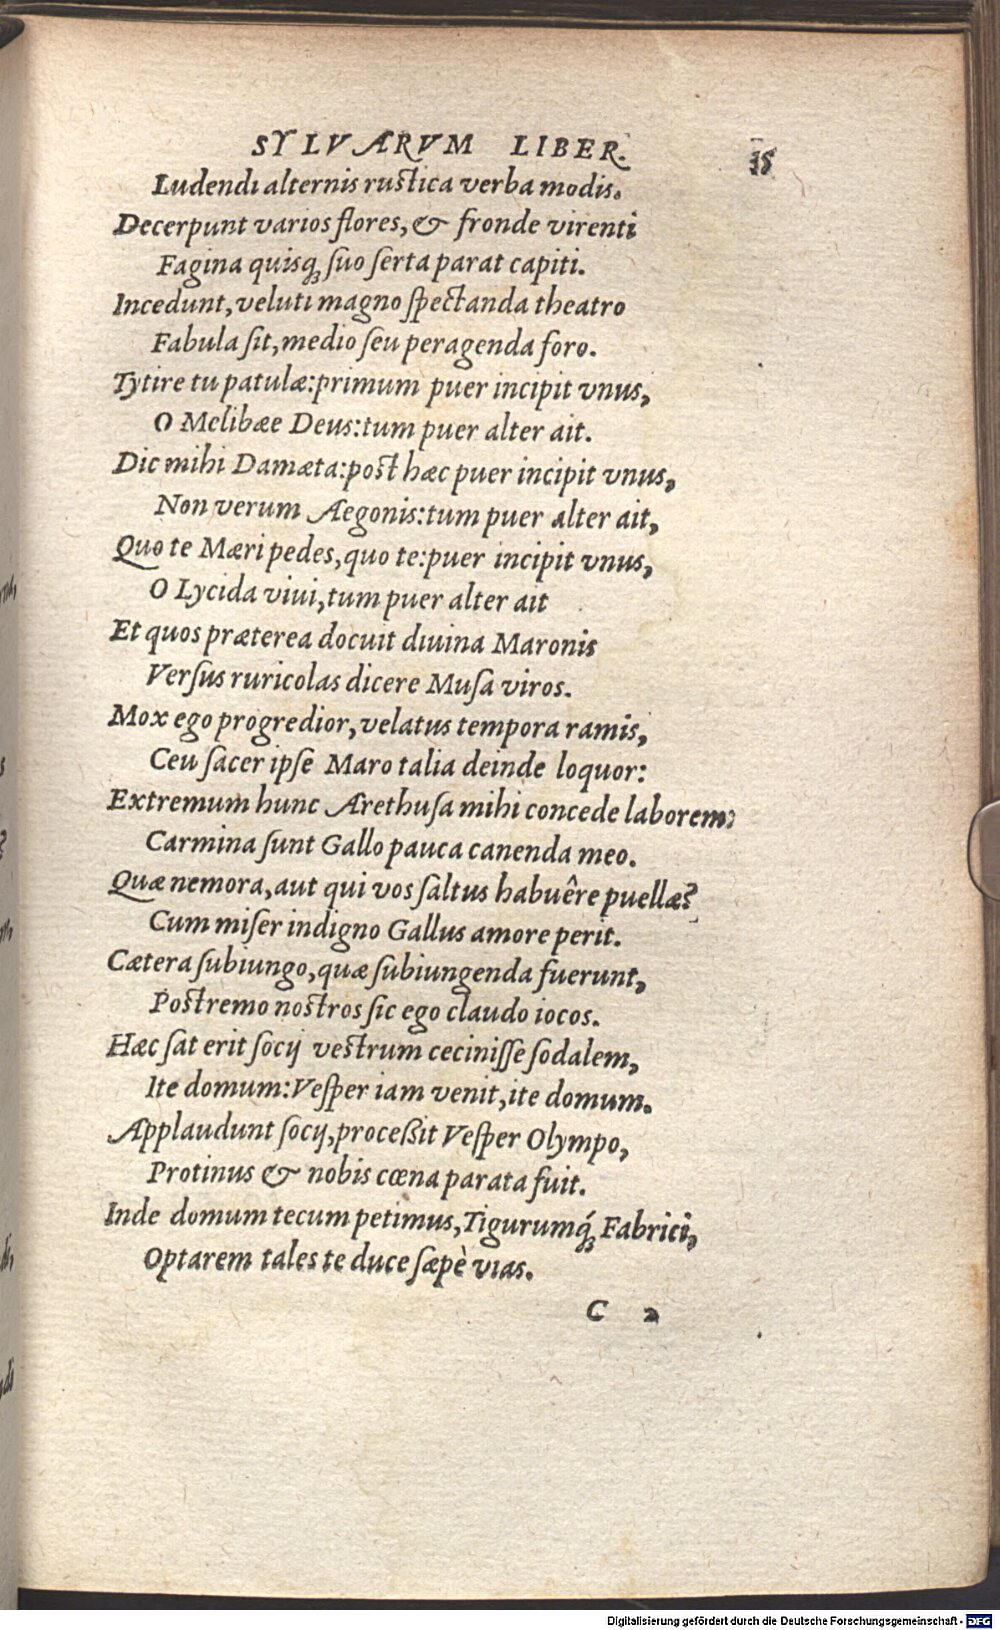 SYLVARVM LIBER. 15
Ludendi alternis rustica verba modis.
Decerpunt varios flores, & fronde virenti
Fagina quisq; suo serta parat capiti.
Incedunt, veluti magno spectanda theatro
Fabula sit, medio seu peragenda foro.
Tytire tu patulæ: primum puer incipit vnus,
O Melibæe Deus: tum puer alter ait.
Dic mihi Damæta: post hæc puer incipit vnus,
Non verum Aegonis: tum puer alter ait,
Quo te Mæri pedes, quo te: puer incipit vnus,
O Lycida viui, tum puer alter ait
Et quos præterea docuit diuina Maronis
Versus ruricolas dicere Musa viros.
Mox ego progredior, velatus tempora ramis,
Ceu sacer ipse Maro talia deinde loquor:
Extremum hunc Arethusa mihi concede laborem:
Carmina sunt Gallo pauca canenda meo.
Quæ nemora, aut qui vos saltus habuêre puellæ?
Cum miser indigno Gallus amore perit.
Cætera subiungo, quæ subiungenda fuerunt,
Postremo nostros sic ego claudo iocos.
Hæc sat erit socij vestrum cecinisse sodalem,
Ite domum: Vesper iam venit, ite domum.
Applaudunt socij, proceßit Vesper Olympo,
Protinus & nobis cœna parata fuit.
Inde domum tecum petimus, Tigurumq́; Fabrici,
Optarem tales te duce sæpè vias.
C 2
Digitalisierung gefördert durch die Deutsche Forschungsgemeinschaft - DFG